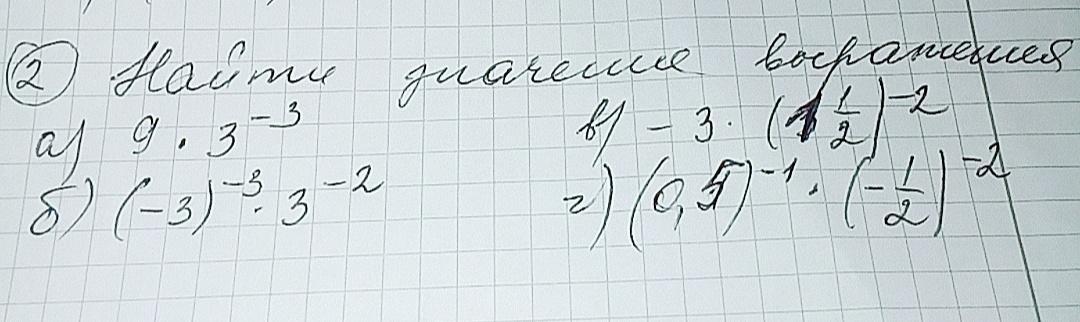 ② Найти значение выражения
а) 9 · 3⁻³
в) - 3 · (1 1/2)⁻²
б) (-3)⁻³ · 3⁻²
г) (0,5)⁻¹ · (-1/2)⁻²